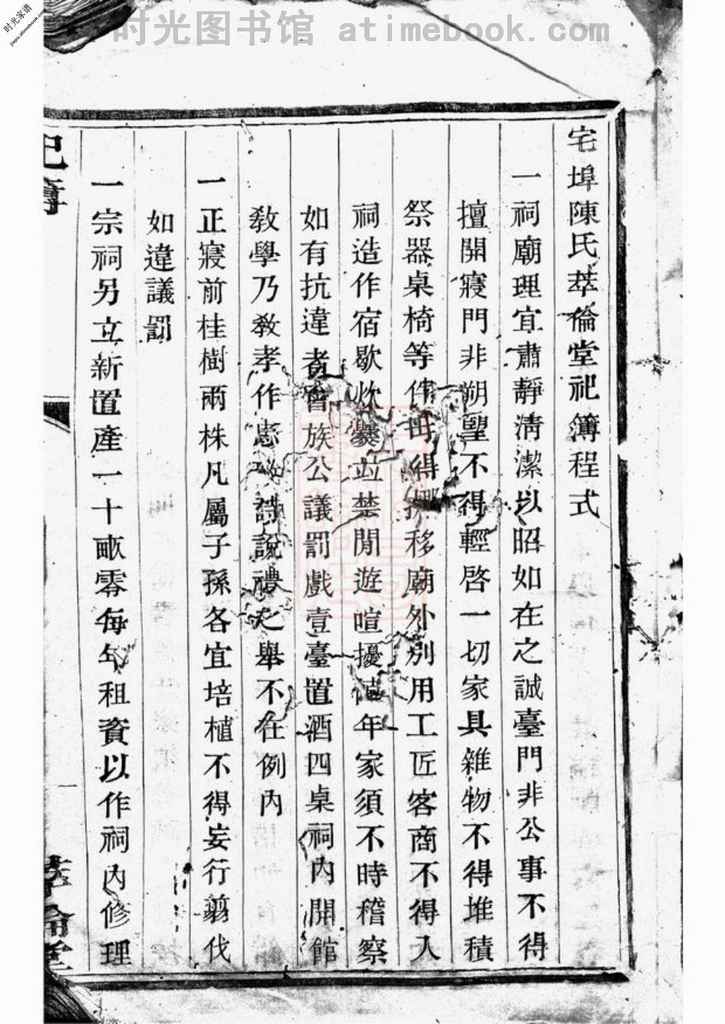 时光图书馆 atimebook.com
时光家谱
宅埠陳氏萃倫堂祀簿程式
一祠廟理宜肅靜清潔以昭如在之誠臺門非公事不得
擅開寢門非朔望不得輕啓一切家具雜物不得堆積
祭器桌椅等件毋得挪移廟外別用工匠客商不得入
祠造作宿歇炊爨並禁閒遊喧擾值年家須不時稽察
如有抗違者會族公議罰戲壹臺置酒四桌祠內開館
敎學乃敎孝作忠詩說禮之舉不在例內
一正寢前桂樹兩株凡屬子孫各宜培植不得妄行剪伐
如違議罰
一宗祠另立新置產一十畝零每年租資以作祠內修理
祀簿
萃倫堂